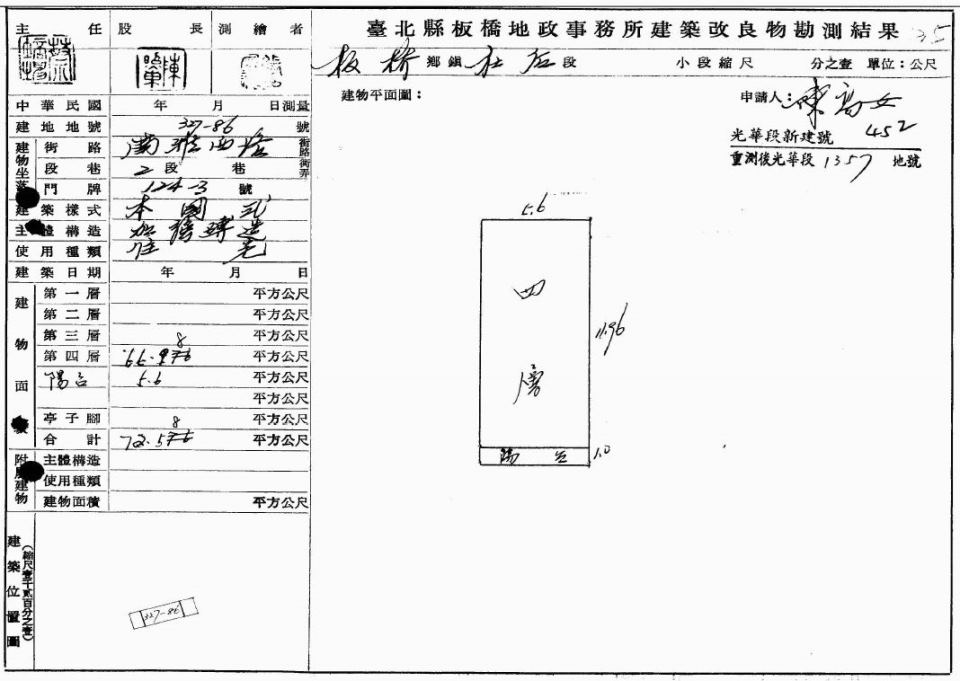 臺北縣板橋地政事務所建築改良物勘測結果 35
主任 股長 測繪者
板橋鄉鎮社后段 小段縮尺 分之壹 單位：公尺
中華民國 年 月 日測量
建物平面圖：
申請人：陳
光華段新建號 452
重測後光華段 1357 地號
建地地號 327-86 號
建物坐落 街路 南雅西路 街路街弄
段巷 2段 巷
門牌 124-3 號
建築樣式 本國式
主體構造 加強磚造
使用種類 住宅
建築日期 年 月 日
建物面積 第一層 平方公尺
第二層 平方公尺
第三層 平方公尺
第四層 平方公尺
陽台 5.6 平方公尺
平方公尺
亭子腳 平方公尺
合計 平方公尺
附屬建物 主體構造
使用種類
建物面積 平方公尺
建築位置圖
(縮尺壹千貳百分之壹)
327-86
5.6
四
層
11.96
陽台
1.0